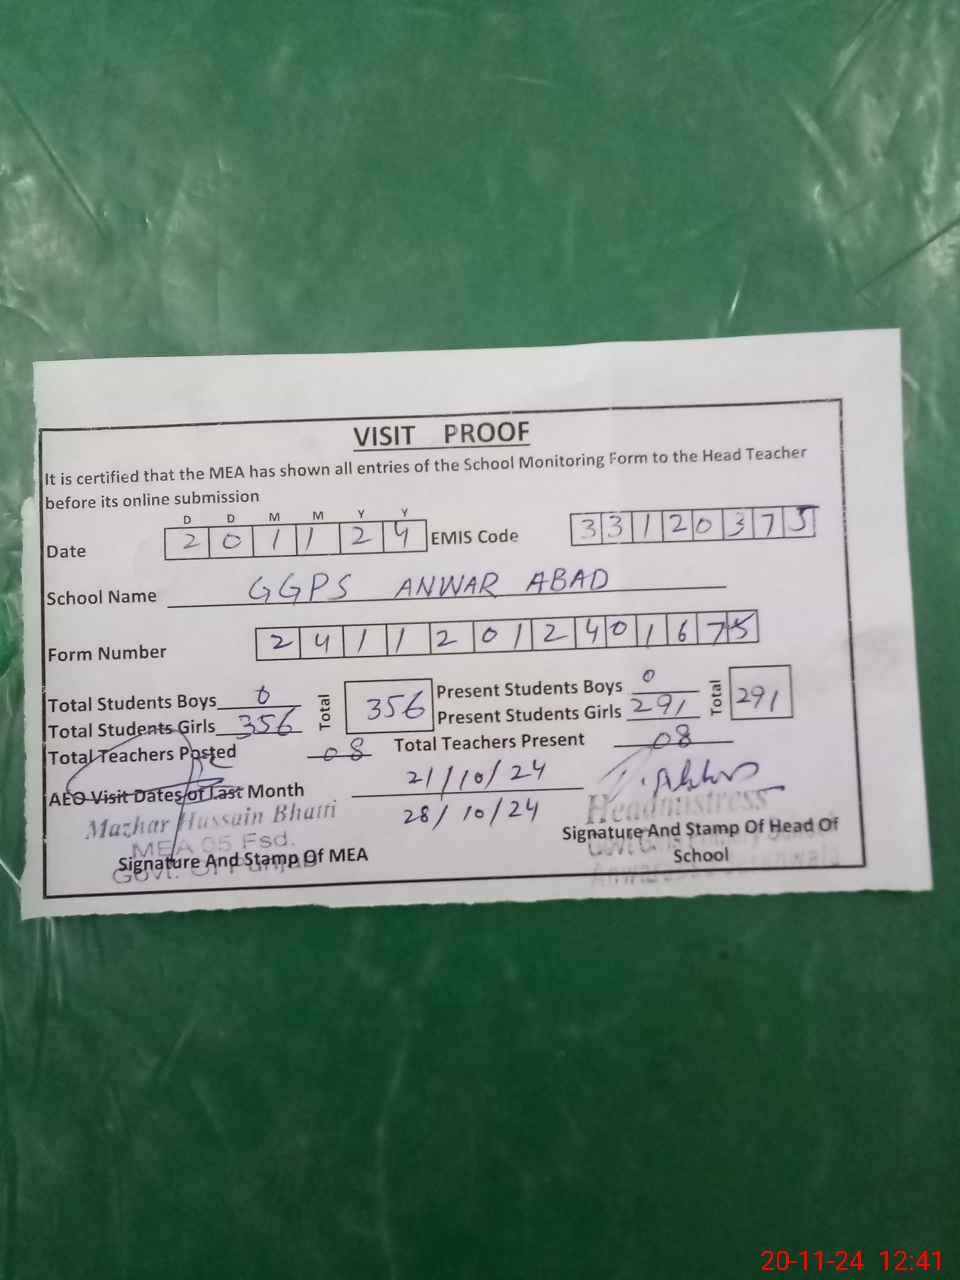 VISIT PROOF
It is certified that the MEA has shown all entries of the School Monitoring Form to the Head Teacher
before its online submission
D D M M Y Y
Date 2 0 1 1 2 4 EMIS Code 3 3 1 2 0 3 7 5
School Name GGPS ANWAR ABAD
Form Number 2 4 1 1 2 0 1 2 4 0 1 6 7 5
Total Students Boys 0 Total 356 Present Students Boys 0 Total 291
Total Students Girls 356 Present Students Girls 291
Total Teachers Posted 08 Total Teachers Present 08
AEO Visit Dates of Last Month 21/10/24
28/10/24
Mazhar Hussain Bhatti
MEA 05 Fsd.
Govt. Of Punjab
Signature And Stamp Of MEA
Headmistress
Signature And Stamp Of Head Of
School
20-11-24 12:41